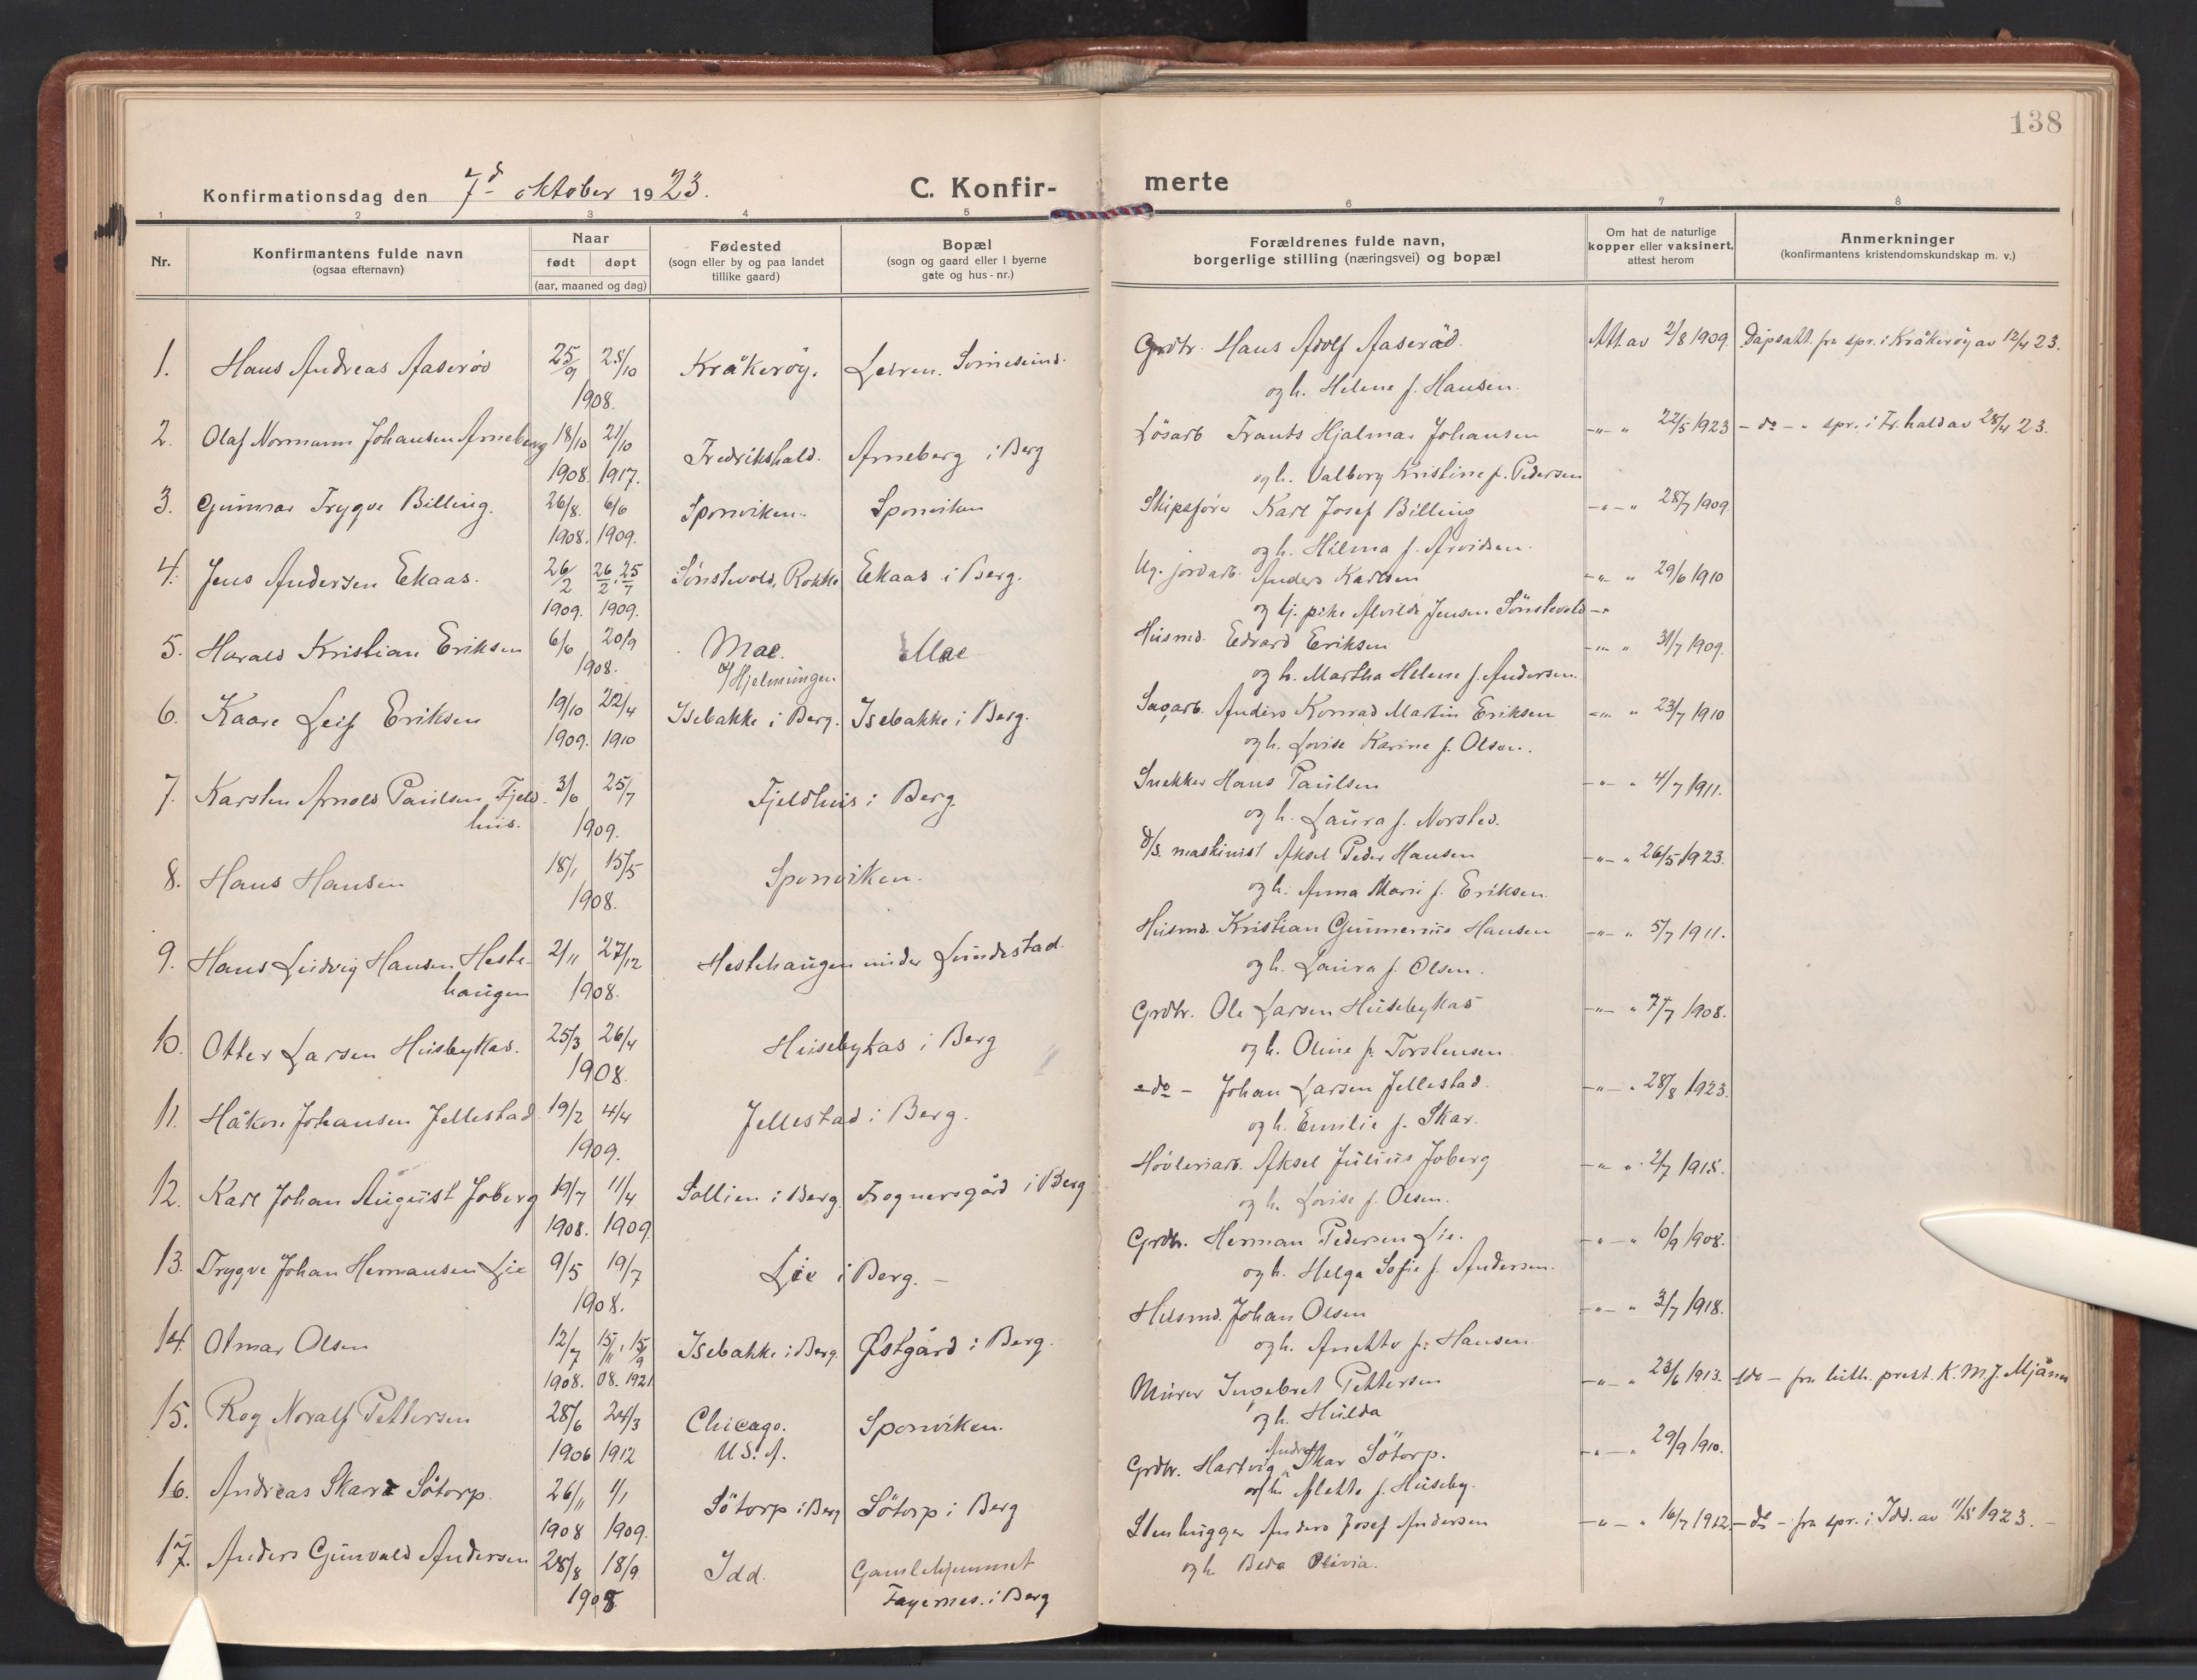 138
Konfirmationsdag den 7d oktober 1923. C. Konfir- merte
1 2 3 4 5 6 7 8
Nr. Konfirmantens fulde navn (ogsaa efternavn) Naar født døpt (aar, maaned og dag) Fødested (sogn eller by og paa landet tillike gaard) Bopæl (sogn og gaard eller i byerne gate og hus-nr.) Forældrenes fulde navn, borgerlige stilling (næringsvei) og bopæl Om hat de naturlige kopper eller vaksinert, attest herom Anmerkninger (konfirmantens kristendomskundskap m. v.)
1. Hans Andreas Aaserød 25/9 25/10 Kråkerøy. Leiren. Grdbr. Hans Adolf Aaseröd. Att. av 2/8 1909. Dåpsatt. fra spr. i Kråkerøy av 12/4 23.
1908. og h. Helene f. Hansen.
2. Olaf Normann Johansen Arneberg 18/10 21/10 Fredrikshald. Arneberg i Berg Lösarb Frants Hjalmar Johansen -"- " 22/5 1923 - do - " spr. i Fr.hald av 28/4 23.
1908. 1917. og h. Valborg Kristine f. Pedersen
3. Gunnar Trygve Billing. 26/8. 6/6 Sponviken. Sponviken Skipsfører Karl Josef Billing -"- " 28/7 1909.
1908. 1909. og h. Hilma f. Arvidsen.
4. Jens Andersen Ekaas. 26/2 26/2, 25/7 Sönstevold, Rokke Ekaas i Berg. Ug. jordarb. Anders Karlsen -"- " 29/6 1910
1909. 1909. og tj. pike Alvilde Jensen Sönstevold -"
5. Harald Kristian Eriksen 6/6 20/9 Mae. Mae Husmd. Edvard Eriksen -"- " 31/7 1909.
1908. u/Hjelmungen og h. Martha Helene f. Andersen.
6. Kaare Leif Eriksen 19/10 22/4 Isebakke i Berg. Isebakke i Berg. Sagarb. Anders Konrad Martin Eriksen -"- " 23/7 1910
1909. 1910 og h. Lovise Karine f. Olsen.
7. Karsten Arnold Paulsen Fjeld- 3/6 25/7 Fjeldhus i Berg. Snekker Hans Paulsen -"- " 4/7 1911.
hus. 1909. og h. Laura f. Norsted.
8. Hans Hansen 18/1 15/5 Sponviken. D/S. maskinist Aksel Peder Hansen -"- " 26/5 1923.
1908. og h. Anna Marie f. Eriksen.
9. Hans Ludvig Hansen Heste- 2/11 27/12 Hestehaugen under Lundestad. Husmd. Kristian Gunnerius Hansen -"- " 5/7 1911.
haugen 1908. og h. Laura f. Olsen.
10. Otter Larsen Husbykas. 25/3 26/4 Husebykas i Berg Grdbr. Ole Larsen Husebykas -"- " 7/7 1908.
1908. og h. Oline f. Torstensen.
11. Håkon Johansen Jellestad 19/2 4/4 Jellestad i Berg. - do - Johan Larsen Jellestad. -"- " 28/8 1923.
1909. og h. Emilie f. Skar.
12. Karl Johan August Joberg 19/7 11/4 Sollien i Berg. Frognersgård i Berg Høvleriarb. Aksel Julius Joberg -"- " 2/7 1915.
1908. 1909. og h. Lovise f. Olsen.
13. Trygve Johan Hermansen Lie 9/5 19/7 Lie i Berg. - Grdbr. Herman Pedersen Lie. -"- " 10/9 1908.
1908. og h. Helga Sofie f. Andersen.
14. Olmar Olsen 12/7 15/11, 15/9 Isebakke i Berg. Østgård i Berg. Husmd. Johan Olsen -"- " 3/7 1918.
1908. 08. 1921. og h. Anette f. Hansen
15. Roy Noralf Pettersen 28/6 24/3 Chicago. Sponviken. Murer Ingebret Pettersen -"- " 23/6 1913. - do - fra luth. prest. K. M. J. Mjånes
1906 1912 U.S.A. og h. Hulda
16. Andreas Skar Sötorp. 26/11 1/1 Sötorp i Berg Sötorp i Berg Grdbr. Hartvig Andr. Skar Sötorp. -"- " 29/9 1910.
1908 1909. og h. Alette f. Huseby.
17. Anders Gunvald Andersen 28/8 18/9 Idd. Gamlehjemmet Stenhugger Anders Josef Andersen -"- " 16/7 1912. - do - fra spr. i Idd. av 11/5 1923. -
1908 Fagernes. i Berg og h. Beda Olivia.